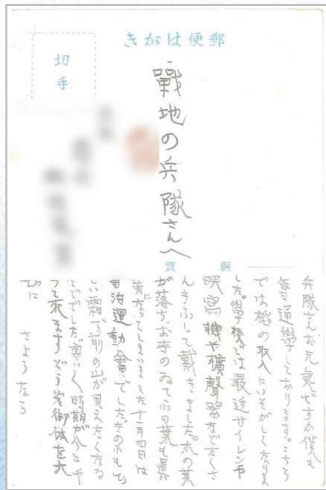 郵便はがき
切手
戰地の兵隊さんへ
兵隊さんお元氣ですか僕も
毎日通學してをります。こちら
では稻の取入にいそがしくなりま
した。學校には最近サイレンや
映寫機や擴聲器などたくさ
んきふして戴きました。木の葉
が落ちお寺のゐてふの葉も黄
葉になってしまひました十一月四日は
自治運動會でした。きのふもひ
い霜で前の山が見えなくなる
どでした。寒い時期が今にや
って来ますどうぞ御体を大
切に さようなら